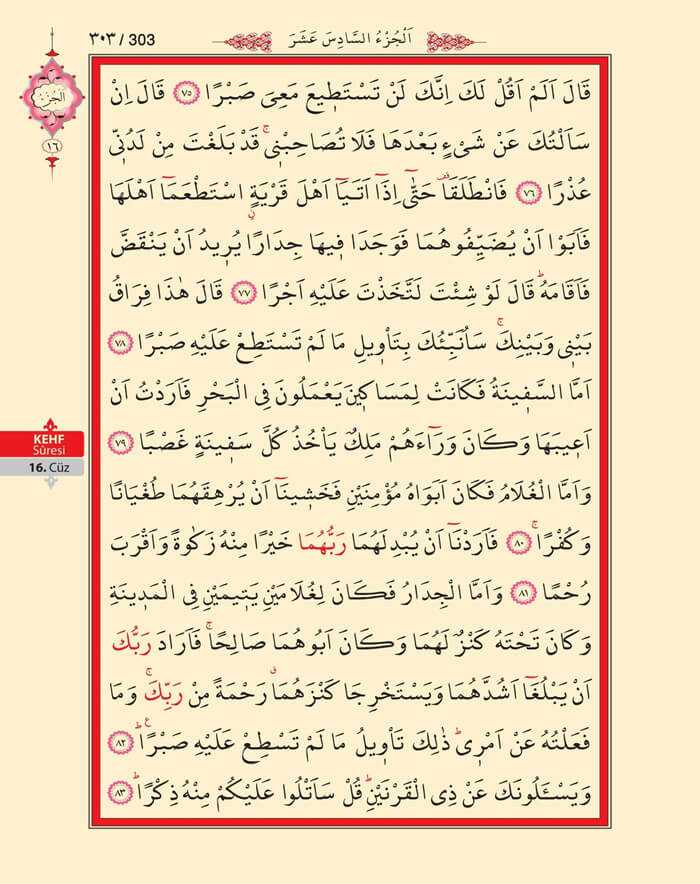 ٣٠٣ / 303
اَلْجُزْءُ السَّادِسَ عَشَرَ
اَلْجُزْءُ
١٦
قَالَ اَلَمْ اَقُلْ لَكَ اِنَّكَ لَنْ تَسْتَطٖيعَ مَعِىَ صَبْرًا ﴿٧٥﴾ قَالَ اِنْ
سَاَلْتُكَ عَنْ شَىْءٍ بَعْدَهَا فَلَا تُصَاحِبْنٖىۚ قَدْ بَلَغْتَ مِنْ لَدُنّٖى
عُذْرًا ﴿٧٦﴾ فَانْطَلَقَاࣞ حَتّٰٓى اِذَٓا اَتَيَٓا اَهْلَ قَرْيَةٍۨ اسْتَطْعَمَٓا اَهْلَهَا
فَاَبَوْا اَنْ يُضَيِّفُوهُمَا فَوَجَدَا فٖيهَا جِدَارًا يُرٖيدُ اَنْ يَنْقَضَّ
فَاَقَامَهُؕ قَالَ لَوْ شِئْتَ لَتَّخَذْتَ عَلَيْهِ اَجْرًا ﴿٧٧﴾ قَالَ هٰذَا فِرَاقُ
بَيْنٖى وَبَيْنِكَۚ سَاُنَبِّئُكَ بِتَاْوٖيلِ مَا لَمْ تَسْتَطِعْ عَلَيْهِ صَبْرًا ﴿٧٨﴾
اَمَّا السَّفٖينَةُ فَكَانَتْ لِمَسَاكٖينَ يَعْمَلُونَ فِى الْبَحْرِ فَاَرَدْتُ اَنْ
اَعٖيبَهَا وَكَانَ وَرَٓاءَهُمْ مَلِكٌ يَاْخُذُ كُلَّ سَفٖينَةٍ غَصْبًا ﴿٧٩﴾
وَاَمَّا الْغُلَامُ فَكَانَ اَبَوَاهُ مُؤْمِنَيْنِ فَخَشٖينَٓا اَنْ يُرْهِقَهُمَا طُغْيَانًا
وَكُفْرًاۚ ﴿٨٠﴾ فَاَرَدْنَٓا اَنْ يُبْدِلَهُمَا رَبُّهُمَا خَيْرًا مِنْهُ زَكٰوةً وَاَقْرَبَ
رُحْمًا ﴿٨١﴾ وَاَمَّا الْجِدَارُ فَكَانَ لِغُلَامَيْنِ يَتٖيمَيْنِ فِى الْمَدٖينَةِ
وَكَانَ تَحْتَهُ كَنْزٌ لَهُمَا وَكَانَ اَبُوهُمَا صَالِحًاۚ فَاَرَادَ رَبُّكَ
اَنْ يَبْلُغَٓا اَشُدَّهُمَا وَيَسْتَخْرِجَا كَنْزَهُمَاࣗ رَحْمَةً مِنْ رَبِّكَۚ وَمَا
فَعَلْتُهُ عَنْ اَمْرٖىؕ ذٰلِكَ تَاْوٖيلُ مَا لَمْ تَسْطِعْ عَلَيْهِ صَبْرًاؕ ﴿٨٢﴾
وَيَسْـَٔلُونَكَ عَنْ ذِى الْقَرْنَيْنِؕ قُلْ سَاَتْلُوا عَلَيْكُمْ مِنْهُ ذِكْرًاؕ ﴿٨٣﴾
KEHF
Sûresi
16. Cüz